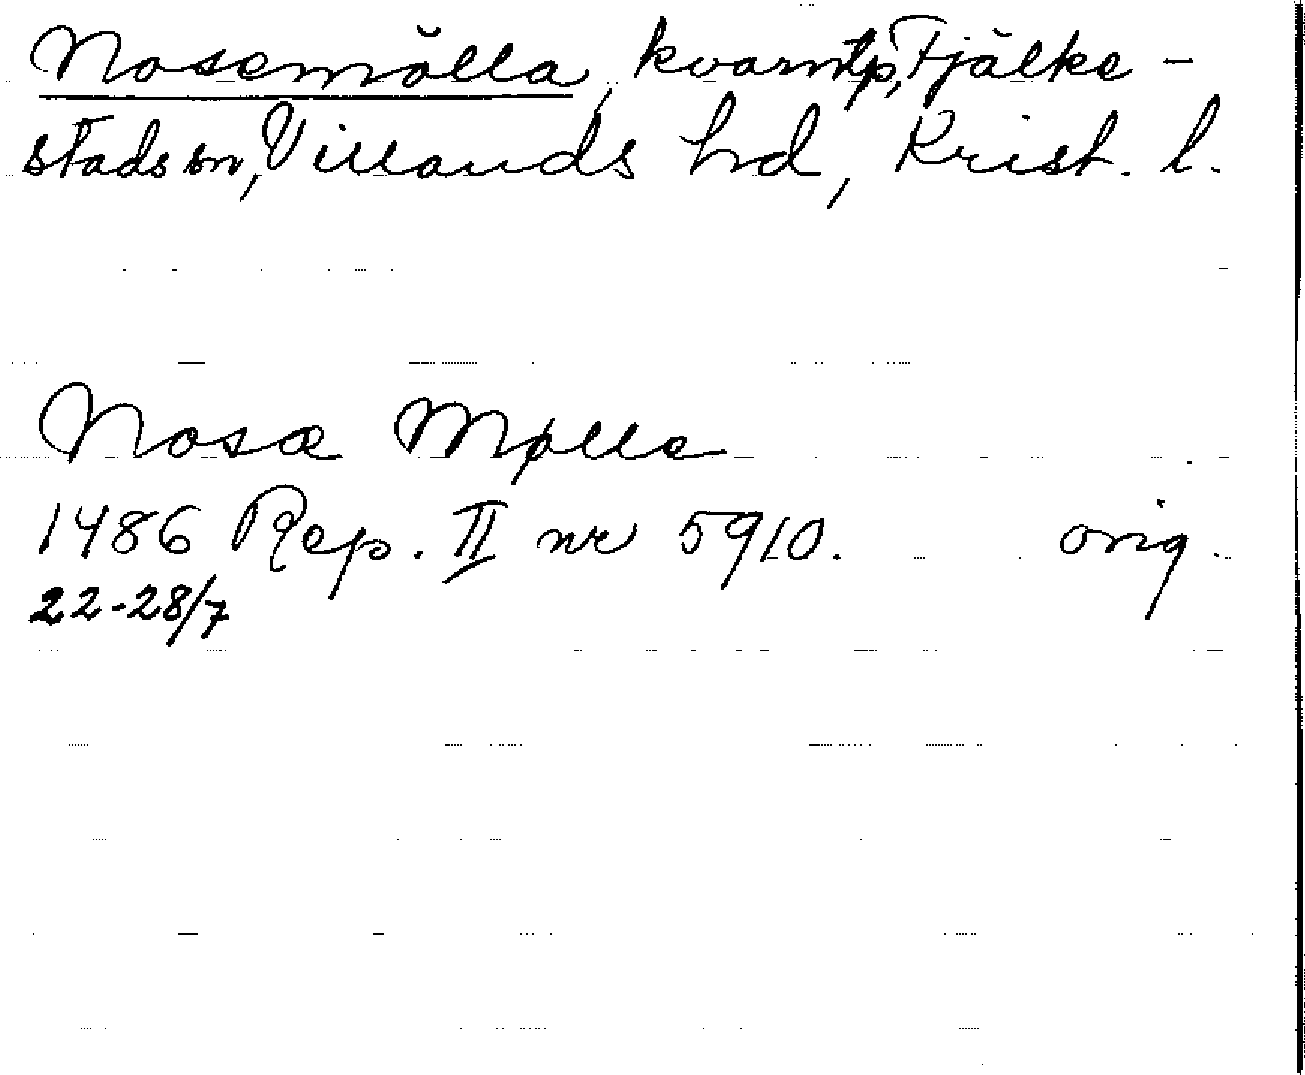 Nosemölla, kvarnpl, Fjälke-
stads sn, Villands hd, Krist. l.
Nosæ Mølle
1486 Rep. II nr 5910. orig.
22-28/7